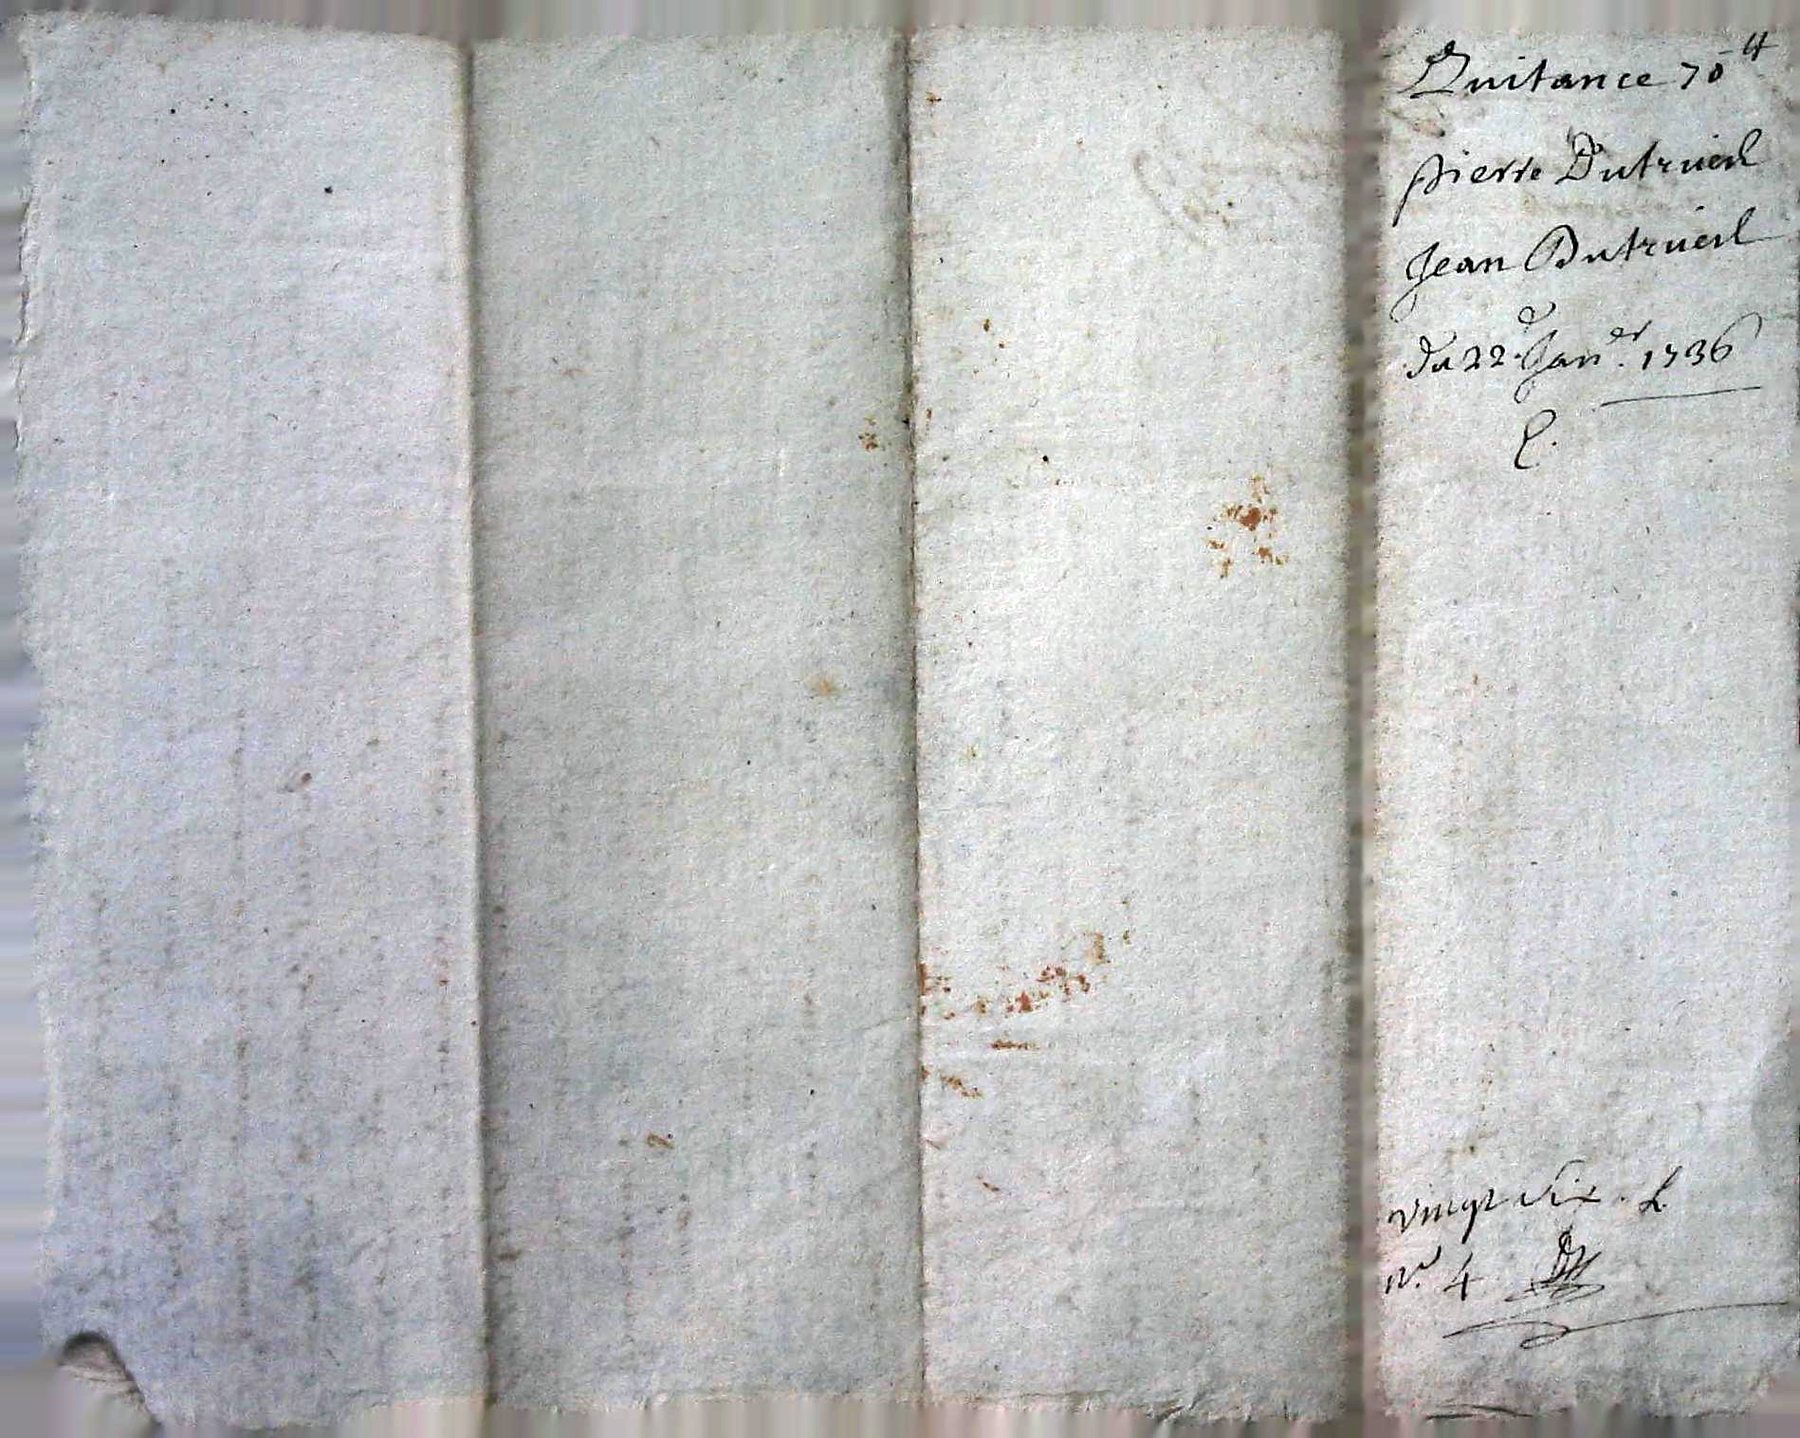 Quitance 70ᵗᵗ
pierre Dutrueil
Jean Dutrueil
du 22e Janer. 1736
P.
vingt six. L.
No. 4